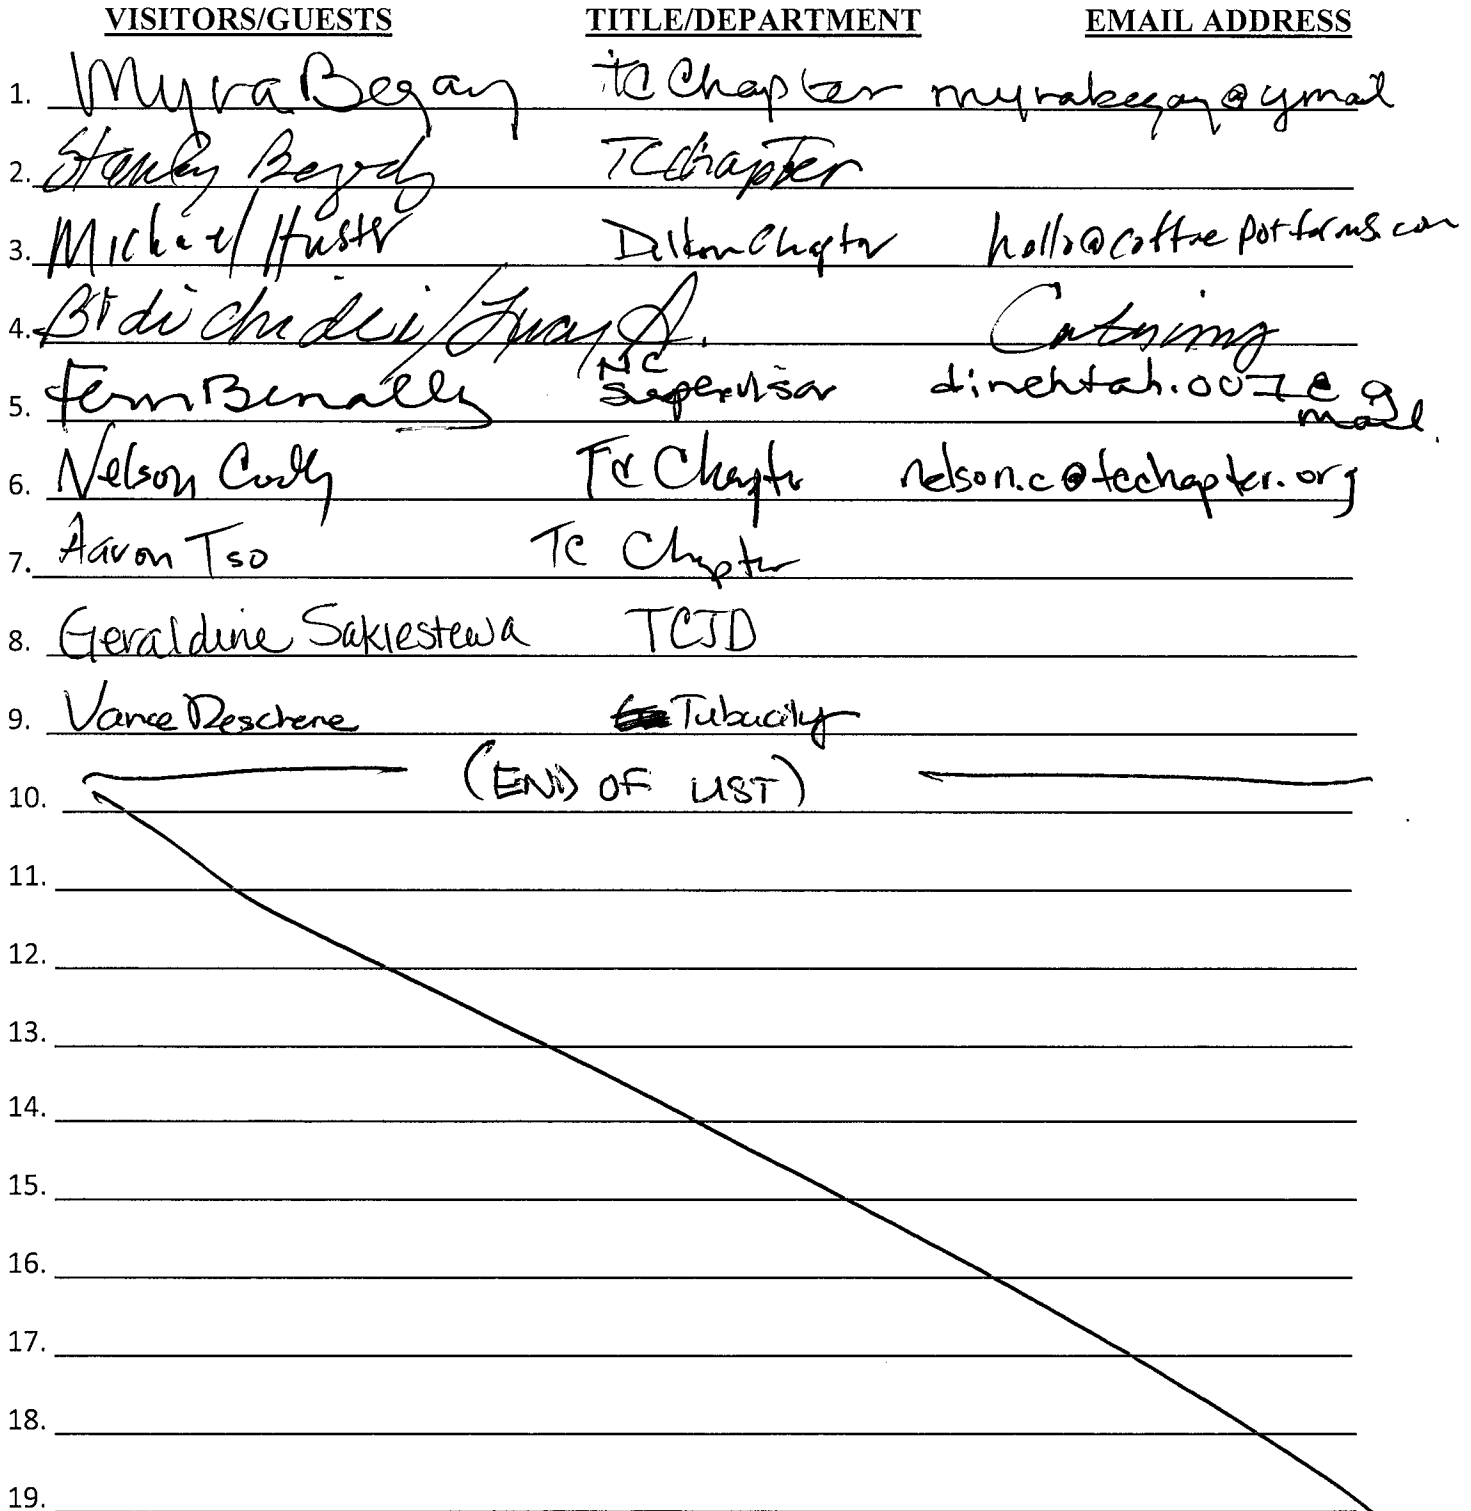 VISITORS/GUESTS TITLE/DEPARTMENT EMAIL ADDRESS
1. Myra Begay TC Chapter myrabegay@ymail
2. Stanley Begody TC Chapter
3. Michael Chapter
4. Catering
5. Fern Benally NC Supervisor dinehtah.007@g
mail.
6. Nelson Cody TC Chapter nelson.c@tcchapter.org
7. Aaron Tso TC Chapter
8. Geraldine Sakiestewa TCJD
9. Vance Deschene Tubacity
(END OF LIST)
10.
11.
12.
13.
14.
15.
16.
17.
18.
19.